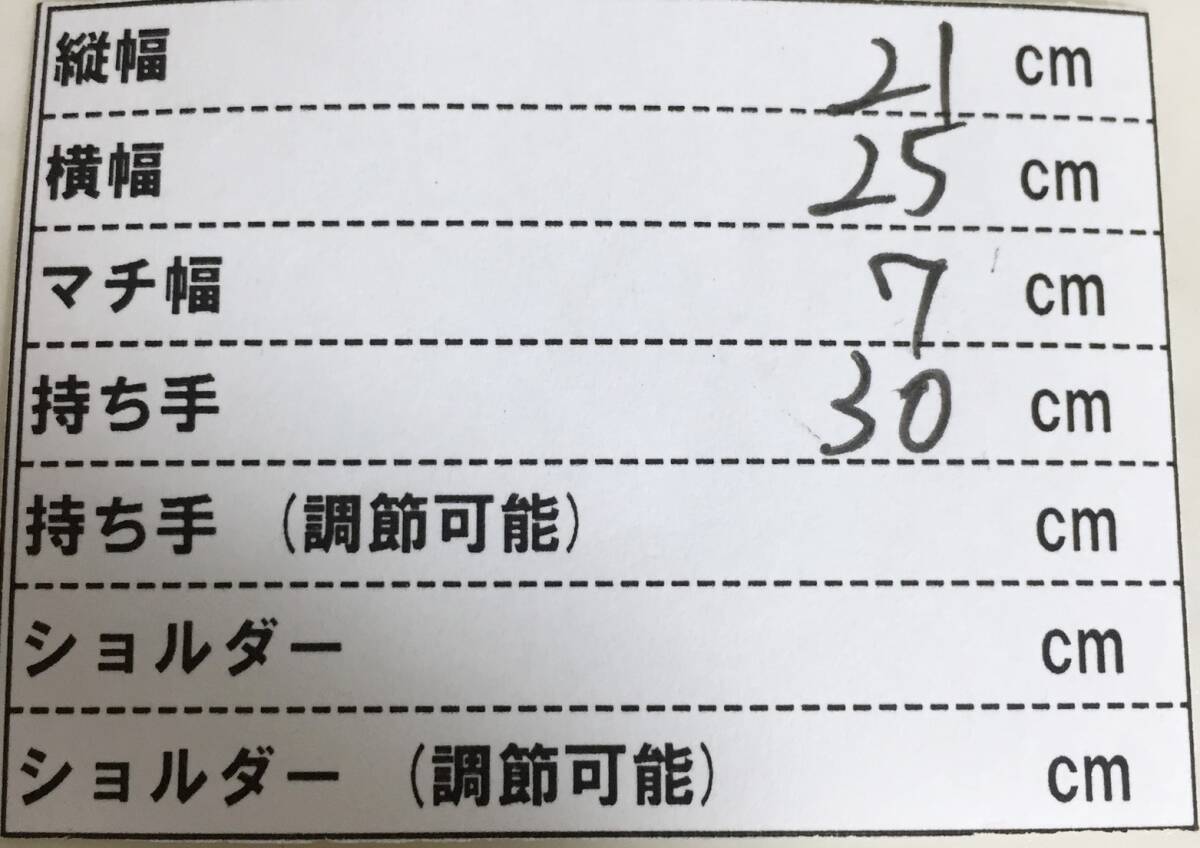 縦幅 21 cm
横幅 25 cm
マチ幅 7 cm
持ち手 30 cm
持ち手 (調節可能) cm
ショルダー cm
ショルダー (調節可能) cm